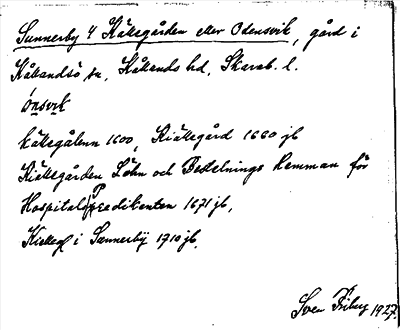 Sunnerby 4 Källegården eller Odensvik, gård i
Kållandsö sn, Kållands hd, Skarab. l.
ònsvik
källegålenn 1600, Kiällegård 1660 jb
Kiällegården Löhn och Bestelnings hemman för
Hospitals Predikanten 1671 jb,
Kielleg i Sunnerbÿ 1710 jb.
Sven Friberg 1927.